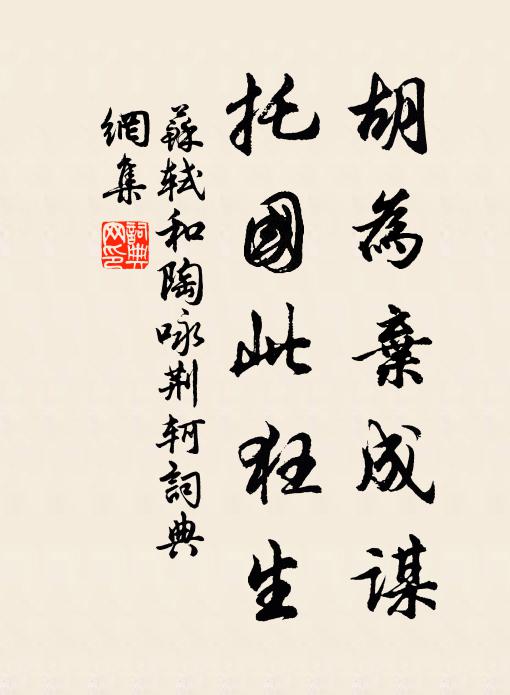 胡為棄成謀
托國此狂生
蘇軾和陶咏荆軻詞典
網集
詞典網印